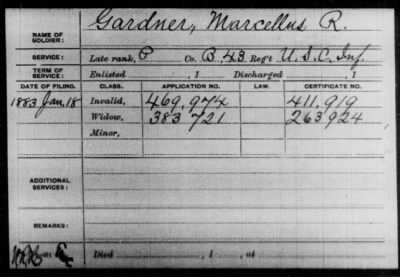 NAME OF SOLDIER: Gardner, Marcellus R.
SERVICE: Late rank, P Co. B, 43 Reg't U. S. C. Inf.
TERM OF SERVICE: Enlisted , 1 Discharged , 1
DATE OF FILING. CLASS. APPLICATION NO. LAW. CERTIFICATE NO.
1883 Jan. 18 Invalid, 469,974 411,919
Widow, 383 721 263924
Minor,
ADDITIONAL SERVICES:
REMARKS:
Died , 1 , at